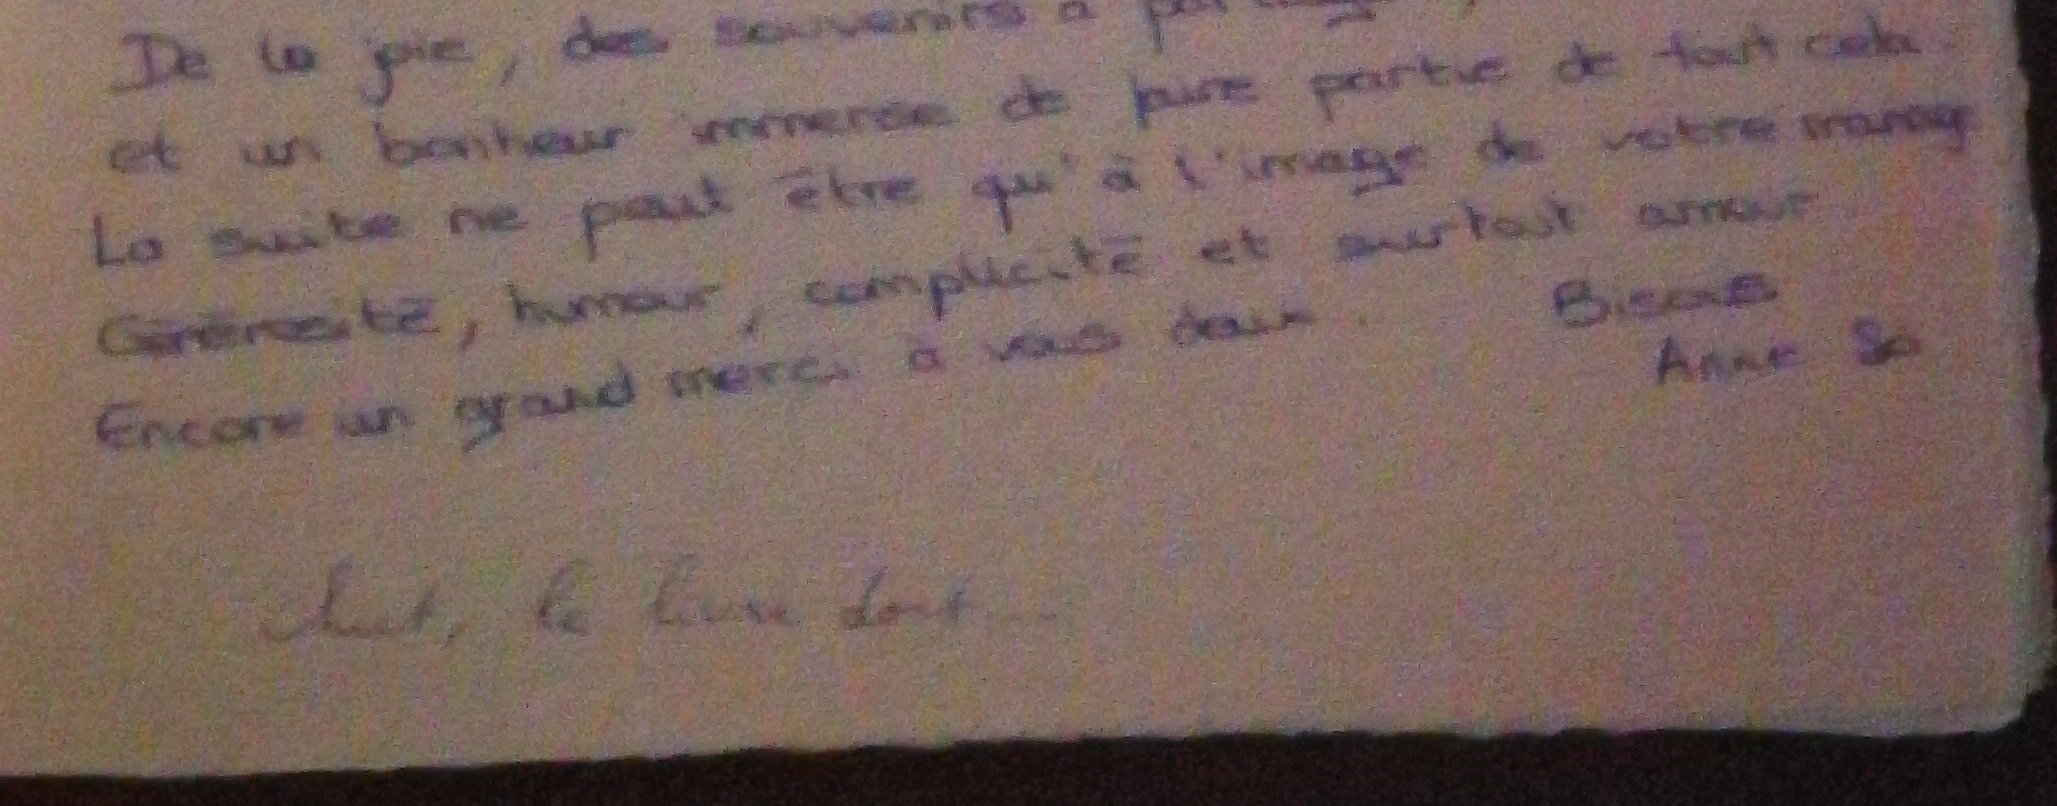 De la joie, des souvenirs à partager,
et un bonheur immense de faire partie de tout cela.
La suite ne peut être qu'à l'image de votre mariage
Générosité, humour, complicité et surtout amour.
Encore un grand merci à vous deux. Bisous
Anne So
Chut, le livre dort...